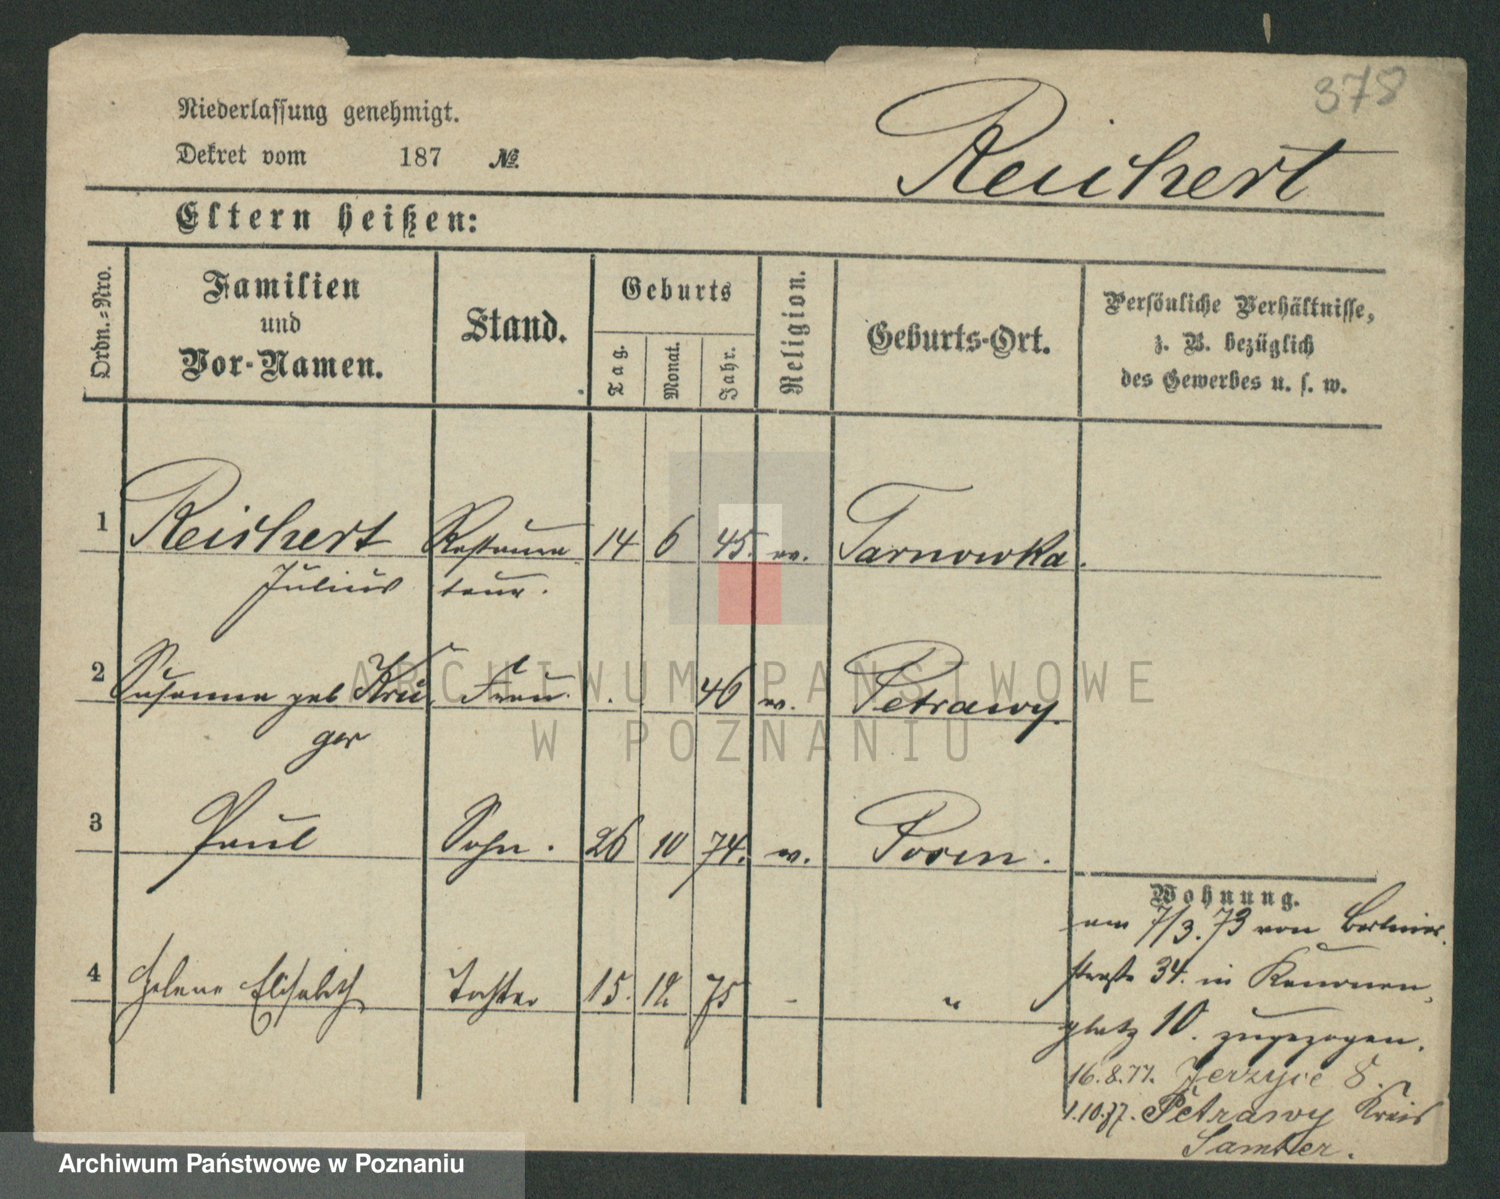 378
Niederlassung genehmigt.
Dekret vom 187 №
Reichert
Eltern heißen:
Ordn.-Nro.
Familien
und
Vor-Namen.
Stand.
Geburts
Tag.
Monat.
Jahr.
Religion.
Geburts-Ort.
Persönliche Verhältnisse,
z. B. bezüglich
des Gewerbes u. s. w.
1 Reichert Restaura 14 6 45. ev. Tarnowka.
Julius teur.
2 Susanna geb Krü Frau. 46 ev. Petrawy.
ger
3 Paul Sohn. 26 10 74. ev. Posen.
4 Helene Elisabeth Tochter 15. 12 75 - "
Wohnung.
am 7/3. 73 von Berliner
straße 34. in Kanonen
platz 10. zugezogen.
16.8.77. Jerzyce 8.
1.10.77. Petrawy Kreis
Samter.
ARCHIWUM PAŃSTWOWE
W POZNANIU
Archiwum Państwowe w Poznaniu